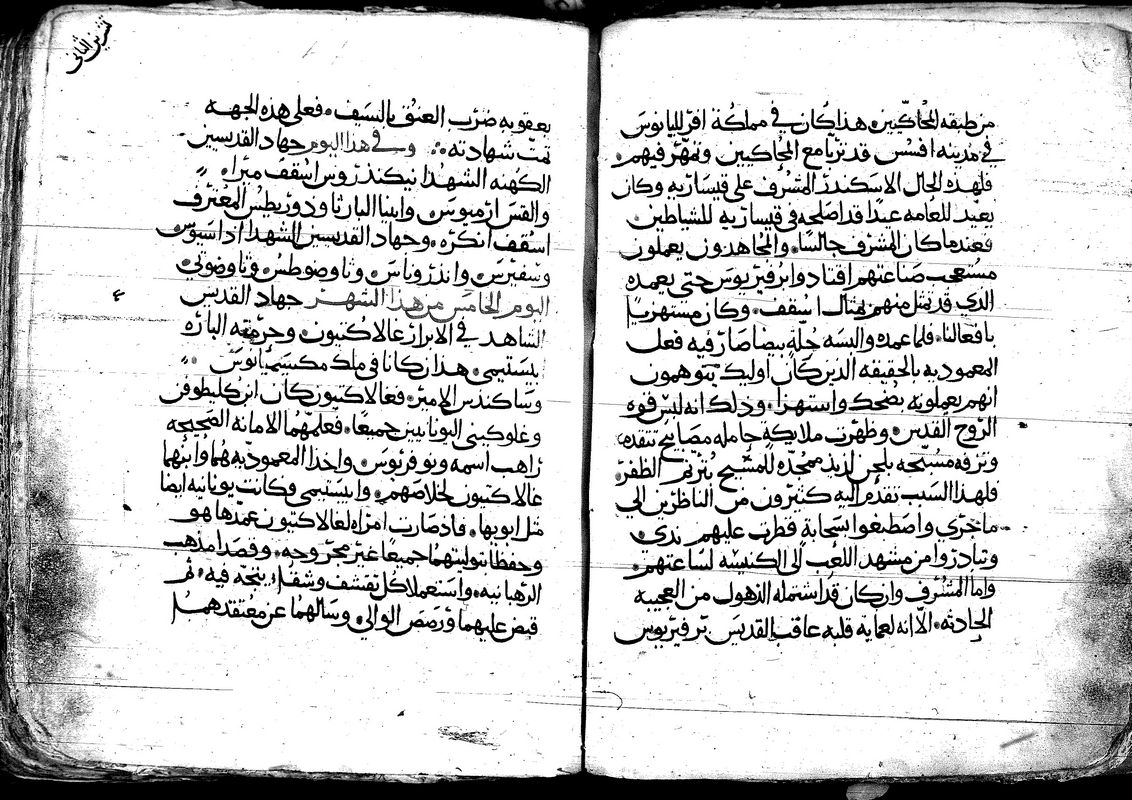 من طبقه المحاكين هذا كان في مملكة افرليانوس
في مدينه افسس قد تزيا مع المحاكيين وتمهر فيهم
فلهذه الحال الاسكندر المشرف على قيساريه وكان
يعيد للعامه عيدًا قد اصلحه في قيساريه للشياطين
فعندما كان المشرف جالسًا والمجاهدون يعملون
صناعتهم اقتادوا برفيريوس حتى يعمده
الذي قد تمثل منهم بمثال اسقف وكان مستهزيا
بافعالنا فلما عمده والبسه حلة بيضا صار فيه فعل
المعموديه بالحقيقه الذين كان اوليك يتوهمون
انهم يعملونه بضحك واستهزا وذلك انه لبس قوه
الروح القدس وظهرت ملايكة حامله مصابيح تتقدمه
وتزفه مسبحه بلحن لذيذ ممجده للمسيح بترنم الظفر
فلهذا السبب تقدم اليه كثيرون من الناظرين الي
ما جرى واصطبغوا بسحابة قطرت عليهم ندى
وتبادروا من مشهد اللعب الى الكنيسه لساعتهم
واما المشرف وان كان قد اشتمله الذهول من العجيبه
الحادثه الا انه لعماية قلبه عاقب القديس برفيريوس
تشرين الثاني
بعقوبه ضرب العنق بالسيف فعلى هذه الجهه
تمت شهادته وفي هذا اليوم جهاد القديسين
الكهنه الشهدا نيكندروس اسقف ميرا
والقس ارميوس وابينا البار ثاودوريطس المعترف
اسقف انكره وجهاد القديسين الشهدا
اليوم الخامس من هذا الشهر جهاد القديس
الشاهد في الابرار غالاكتيون وحرمته الباره
ابيستيمي هذان كانا في ملك مكسيميانوس
وساكندس الامير فغالاكتيون كان ابن كليطوفن
وغلوكيبي اليونانيين جميعًا فعلمهما الامانه الصحيحه
راهب اسمه ونوفريوس واخذا المعموديه هما وابنهما
غالاكتيون لخلاصهم وابيستيمي فكانت يونانيه ايضا
مثل ابويها فاذ صارت امراه لغالاكتيون عمدها هو
وحفظا بتوليتهما جميعًا غير مجروحه وقصدا مذهب
الرهبانيه واستعملا كل تقشف ونسك ثم
قبض عليهما الوالي وسالهما عن معتقدهما